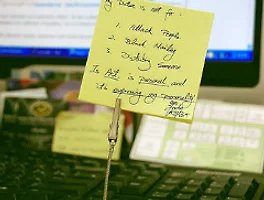 my Status is not for :
1. Attack People.
2. Black Mailing
3. Disturbing Someone
Is Art, is personal and
its expressing my personality